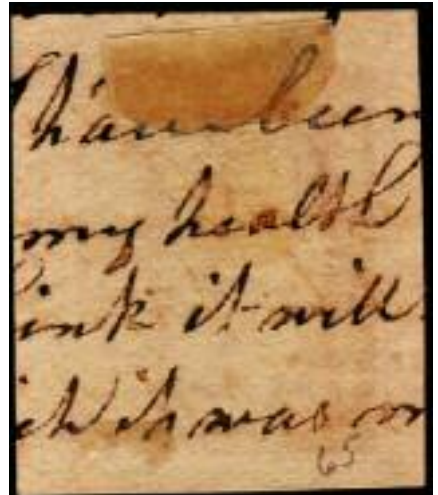 have been
my health
ink it will
ich it was m
65